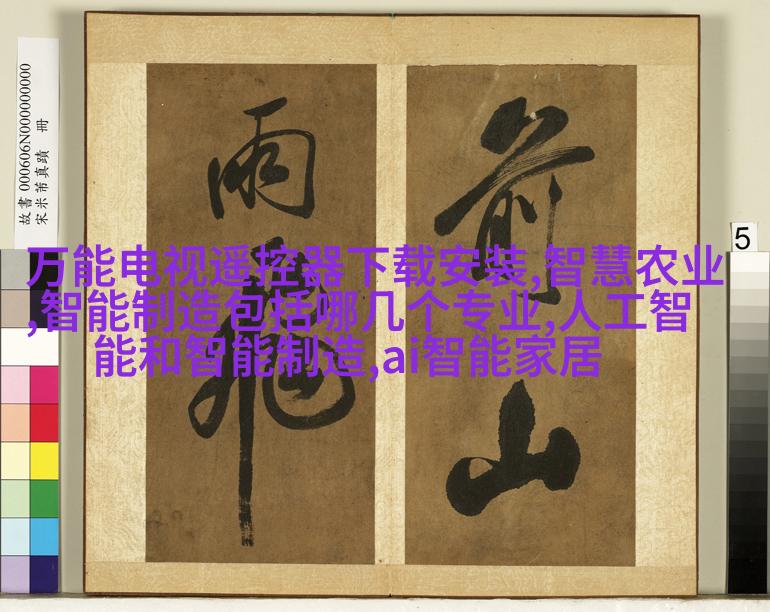 故書 000606N000000000
宋米芾真蹟 冊
前山
雨飛
万能电视遥控器下载安装,智慧农业
,智能制造包括哪几个专业,人工智
能和智能制造,ai智能家居
5